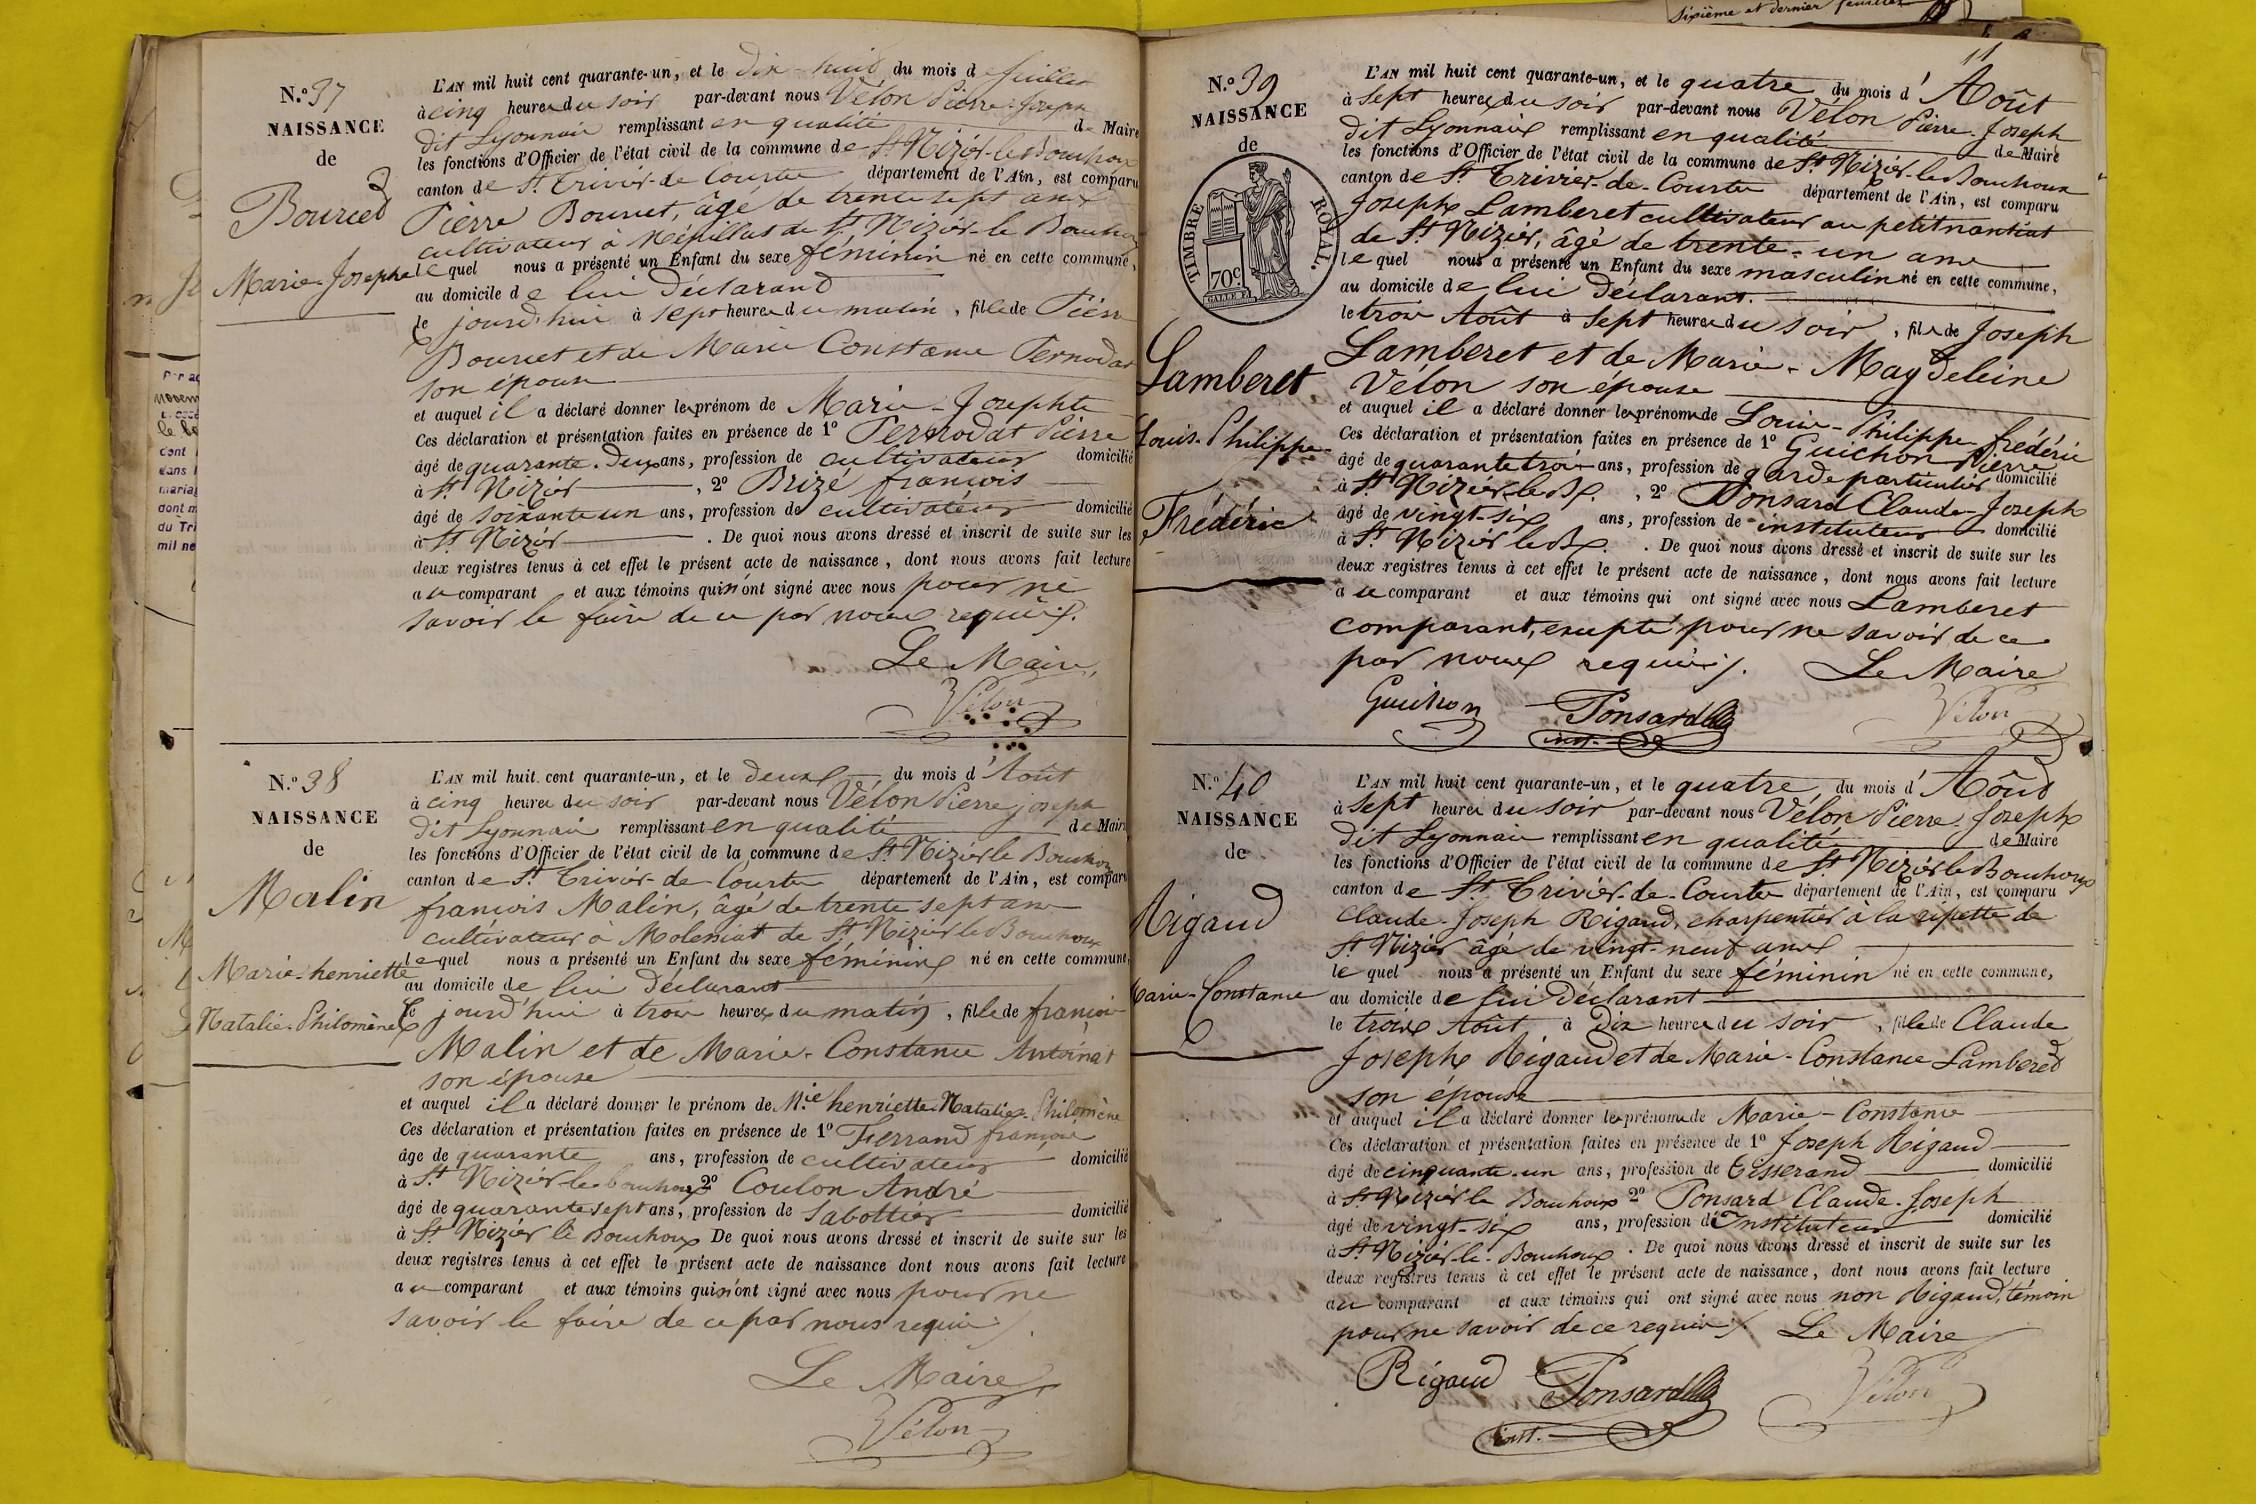 Sixième et dernier feuillet
N.º 37
NAISSANCE
de
Bourcet
Marie-Josephte
L'AN mil huit cent quarante-un, et le dix-huit du mois de juillet
à cinq heures du soir par-devant nous Vélon Pierre-Joseph
dit Lyonnais remplissant en qualité de Maire
les fonctions d'Officier de l'état civil de la commune de St Nizier-le-Bouchoux
canton de St Trivier-de-Courtes département de l'Ain, est comparu
Pierre Bourcet, âgé de trente sept ans
cultivateur à de St Nizier-le Bouchoux
lequel nous a présenté un Enfant du sexe féminin né en cette commune,
au domicile de lui déclarant
le jourd'hui à sept heures du matin, fille de Pierre
Bourcet et de Marie Constance Pernodat
son épouse
et auquel il a déclaré donner les prénom de Marie-Josephte
Ces déclaration et présentation faites en présence de 1º Pernodat Pierre
âgé de quarante-deux ans, profession de cultivateur domicilié
à St Nizier , 2º Brizé françois
âgé de soixante un ans, profession de cultivateur domicilié
à St Nizier . De quoi nous avons dressé et inscrit de suite sur les
deux registres tenus à cet effet le présent acte de naissance, dont nous avons fait lecture
au comparant et aux témoins qui n'ont signé avec nous pour ne
savoir le faire de ce par nous requis.
Le Maire,
Vélon
N.º 38
NAISSANCE
de
Malin
Marie-henriette
Natalie-Philomène
L'AN mil huit cent quarante-un, et le deux du mois d'Août
à cinq heures du soir par-devant nous Vélon Pierre joseph
dit Lyonnais remplissant en qualité de Maire
les fonctions d'Officier de l'état civil de la commune de St Nizier le Bouchoux
canton de St Trivier-de-Courtes département de l'Ain, est comparu
françois Malin, âgé de trente sept ans
cultivateur à Moleniat de St Nizier le Bouchoux
lequel nous a présenté un Enfant du sexe féminin né en cette commune,
au domicile de lui déclarant
le jourd'hui à trois heures du matin, fille de françois
Malin et de Marie-Constance Antoinat
son épouse
et auquel il a déclaré donner le prénom de M.ie henriette Natalie-Philomène
Ces déclaration et présentation faites en présence de 1º Ferrand françois
âge de quarante ans, profession de cultivateur domicilié
à St Nizier-le bouchoux 2º Coulon André
âgé de quarante sept ans, profession de Sabottier domicilié
à St Nizier le Bouchoux De quoi nous avons dressé et inscrit de suite sur les
deux registres tenus à cet effet le présent acte de naissance dont nous avons fait lecture
au comparant et aux témoins qui n'ont signé avec nous pour ne
savoir le faire de ce par nous requis.
Le Maire
Vélon
11
N.º 39
NAISSANCE
de
TIMBRE ROYAL.
70c
Lamberet
Louis-Philippe-
Frédéric
L'AN mil huit cent quarante-un, et le quatre du mois d'Août
à sept heures du soir par-devant nous Vélon Pierre-Joseph
dit Lyonnais remplissant en qualité de Maire
les fonctions d'Officier de l'état civil de la commune de St Nizier-le-Bouchoux
canton de St Trivier-de-Courtes département de l'Ain, est comparu
Joseph Lamberet cultivateur au petit nantiat
de St Nizier, âgé de trente-un ans
lequel nous a présenté un Enfant du sexe masculin né en cette commune,
au domicile de lui déclarant.
le trois Août à sept heures du soir, fils de Joseph
Lamberet et de Marie-Magdeleine
Vélon son épouse
et auquel il a déclaré donner les prénoms de Louis-Philippe-frédéric
Ces déclaration et présentation faites en présence de 1º Guichon Pierre
âgé de quarante trois ans, profession de garde particulier domicilié
à St Nizier-le-Bx. , 2º Ponsard Claude-Joseph
âgé de vingt-six ans, profession de instituteur domicilié
à St Nizier le Bx. . De quoi nous avons dressé et inscrit de suite sur les
deux registres tenus à cet effet le présent acte de naissance, dont nous avons fait lecture
à ce comparant et aux témoins qui ont signé avec nous Lamberet
comparant, excepté pour ne savoir de ce
par nous requis. Le Maire
Guichon Ponsard Vélon
inst.
N.º 40
NAISSANCE
de
Rigaud
Marie-Constance
L'AN mil huit cent quarante-un, et le quatre du mois d'Août
à sept heures du soir par-devant nous Vélon Pierre-Joseph
dit Lyonnais remplissant en qualité de Maire
les fonctions d'Officier de l'état civil de la commune de St Nizier le Bouchoux
canton de St Trivier-de-Courtes département de l'Ain, est comparu
Claude-Joseph Rigaud, charpentier à la ripette de
St Nizier âgé de vingt-neuf ans
lequel nous a présenté un Enfant du sexe féminin né en cette commune,
au domicile de lui déclarant
le trois Août à Dix heures du soir, fille de Claude
Joseph Rigaud et de Marie-Constance Lamberet
son épouse
et auquel il a déclaré donner les prénoms de Marie-Constance
Ces déclaration et présentation faites en présence de 1º Joseph Rigaud
âgé de cinquante-un ans, profession de tisserand domicilié
à St Nizier le Bouchoux 2º Ponsard Claude-Joseph
âgé de vingt-six ans, profession d'Instituteur domicilié
à St Nizier-le-Bouchoux . De quoi nous avons dressé et inscrit de suite sur les
deux registres tenus à cet effet le présent acte de naissance, dont nous avons fait lecture
au comparant et aux témoins qui ont signé avec nous non Rigaud, témoin
pour ne savoir de ce requis. Le Maire
Rigaud Ponsard Vélon
inst.